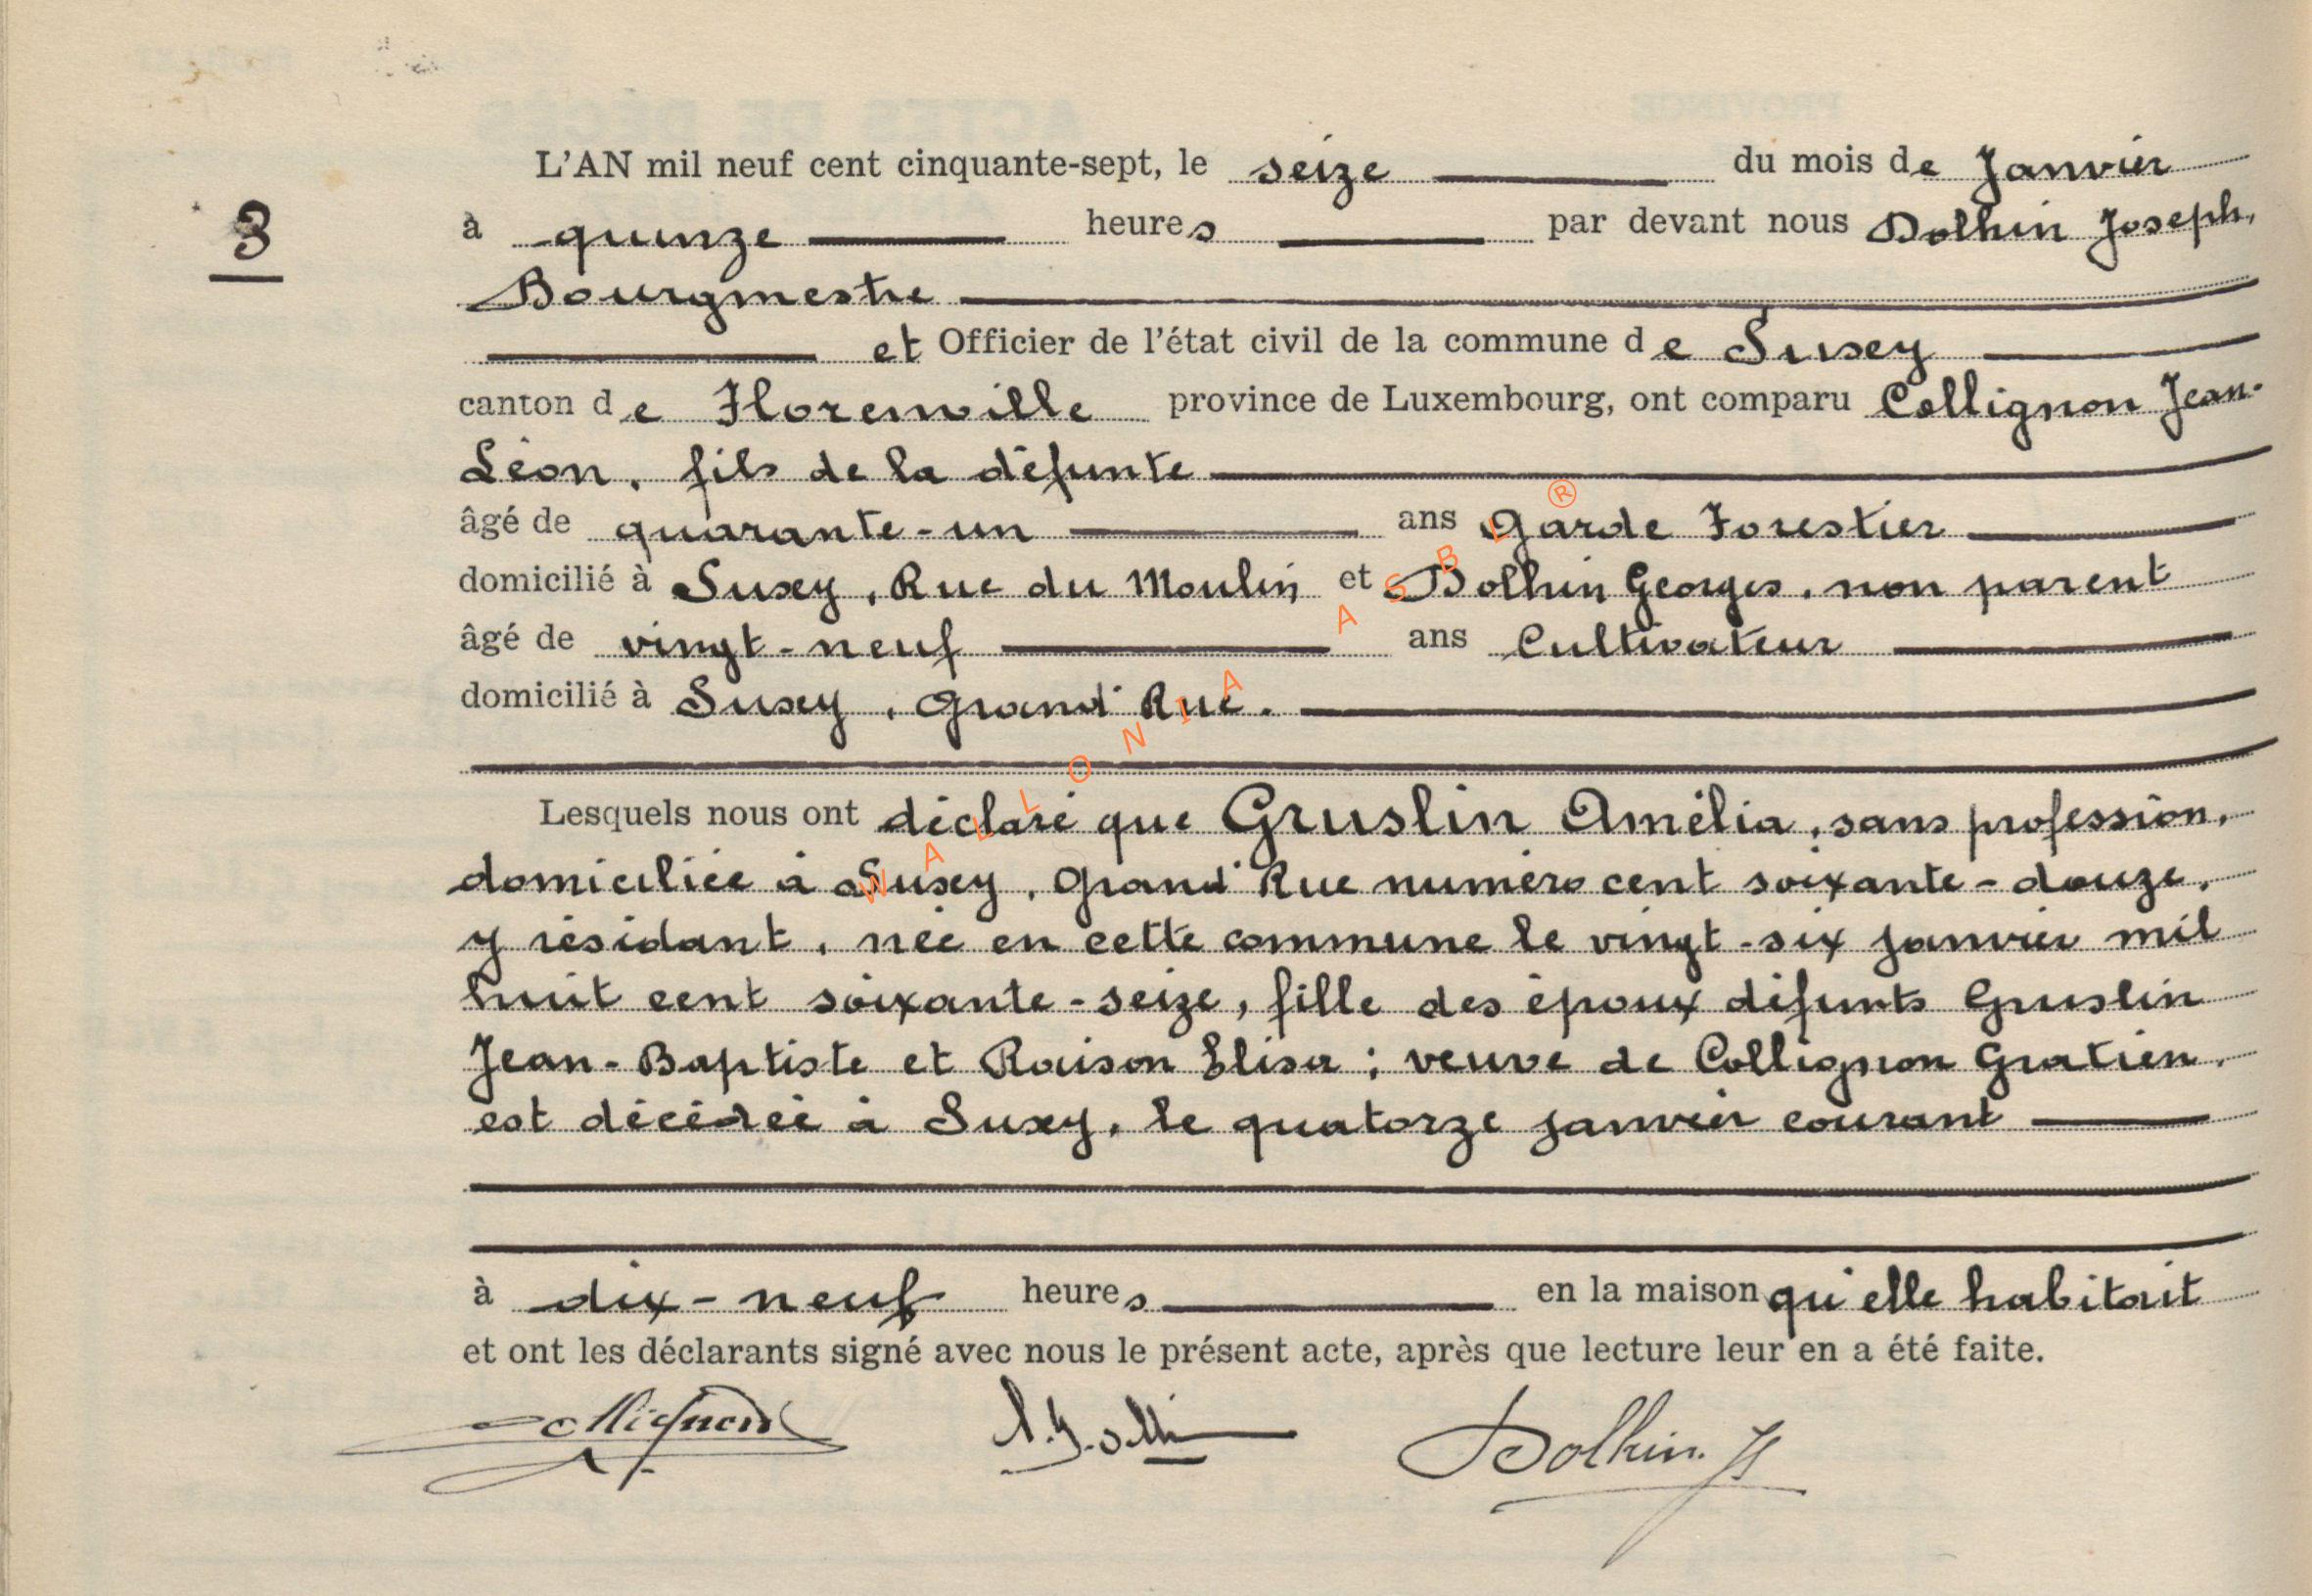 L'AN mil neuf cent cinquante-sept, le seize du mois de Janvier
3
à quinze heures par devant nous Dolhin Joseph,
Bourgmestre
et Officier de l'état civil de la commune de Suxey
canton de Florenville province de Luxembourg, ont comparu Collignon Jean-
Léon, fils de la défunte
âgé de quarante-un ans Garde Forestier
domicilié à Suxey, Rue du Moulin et Dolhin Georges, non parent
âgé de vingt-neuf ans Cultivateur
domicilié à Suxey, Grand'Rue.
Lesquels nous ont déclaré que Gruslin Amélia, sans profession,
domiciliée à Suxey, Grand'Rue numéro cent soixante-douze,
y résidant, née en cette commune le vingt-six janvier mil
huit cent soixante-seize, fille des époux défunts Gruslin
Jean-Baptiste et Raison Elisa ; veuve de Collignon Gratien,
est décédée à Suxy, le quatorze janvier courant
à dix-neuf heures en la maison qu'elle habitait
et ont les déclarants signé avec nous le présent acte, après que lecture leur en a été faite.
Dolhin Js
WALLONIA ASBL ®